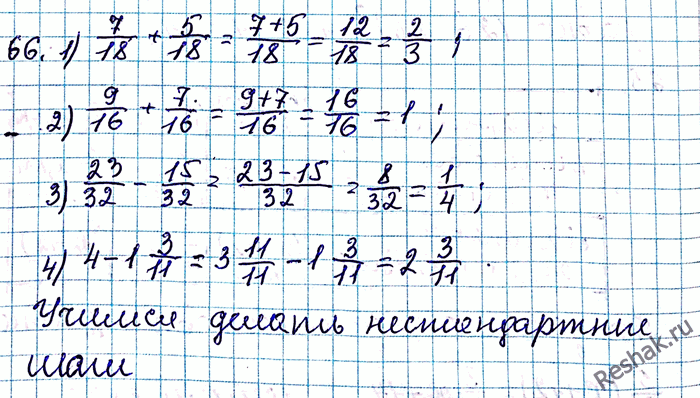 66. 1) 7/18 + 5/18 = 7+5/18 = 12/18 = 2/3 ;
2) 9/16 + 7/16 = 9+7/16 = 16/16 = 1 ;
3) 23/32 - 15/32 = 23-15/32 = 8/32 = 1/4 ;
4) 4 - 1 3/11 = 3 11/11 - 1 3/11 = 2 3/11 .
Учимся делать нестандартные
шаги
Reshak.ru